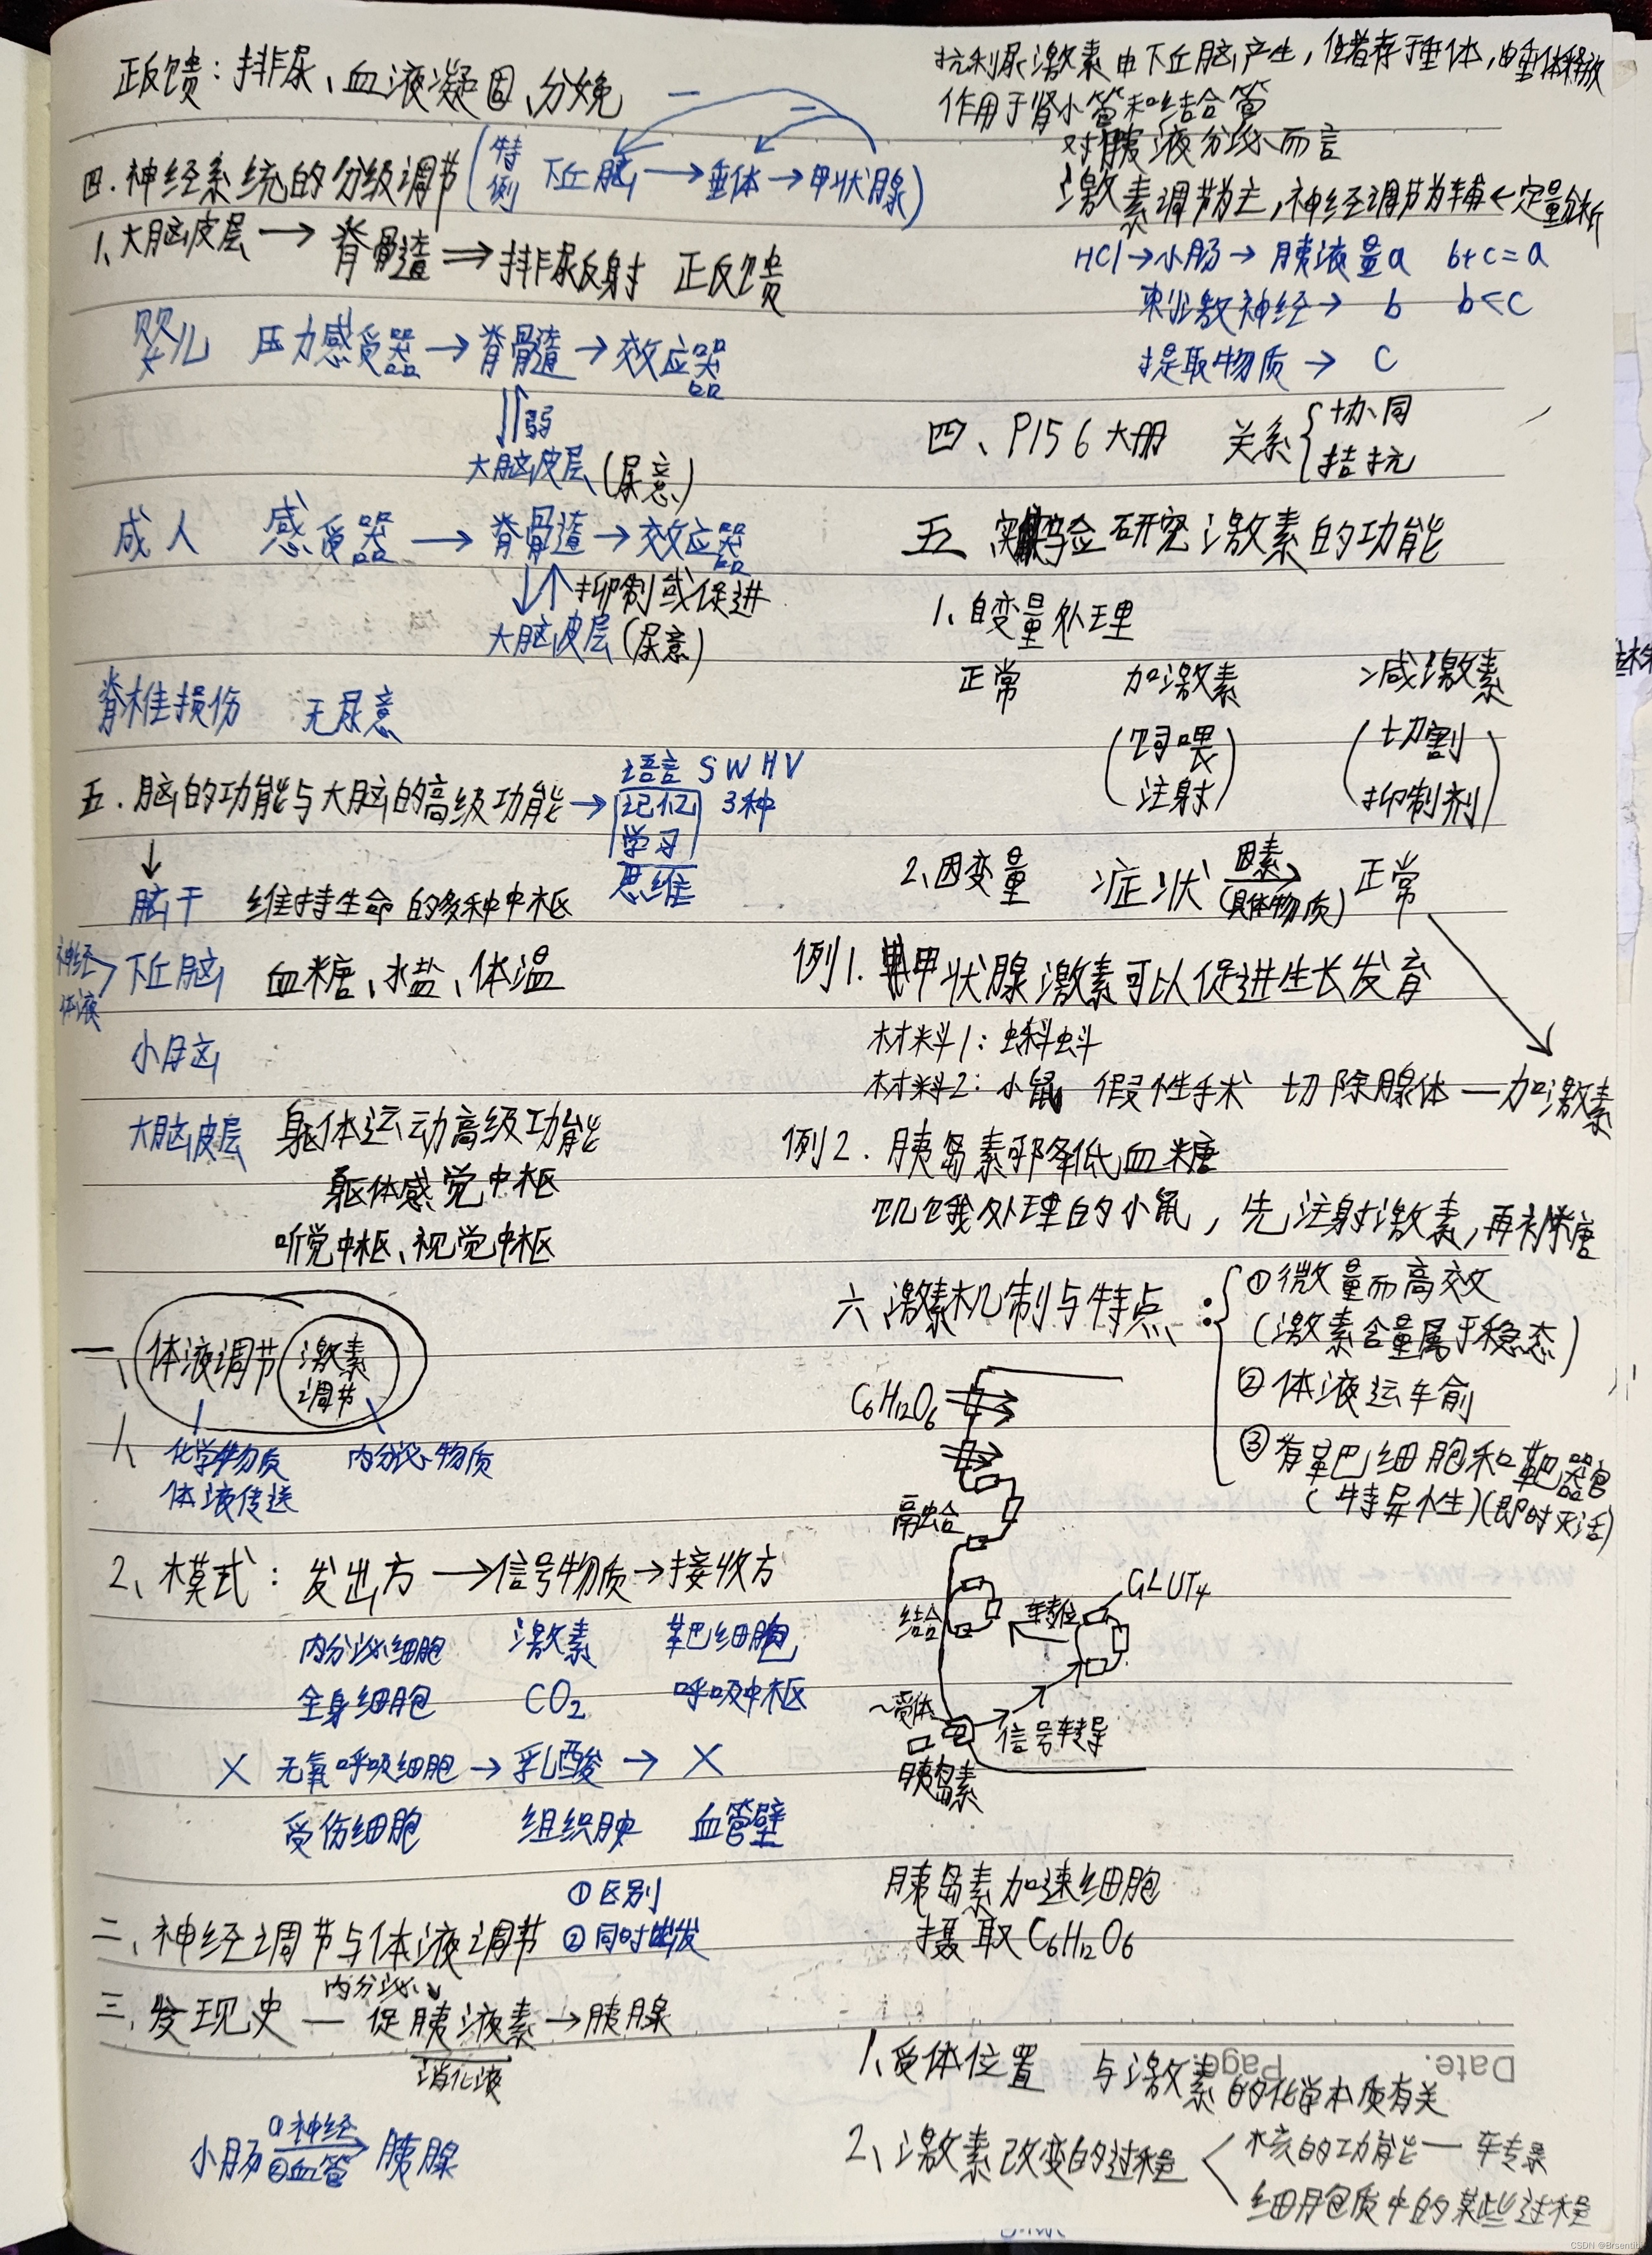 正反馈：排尿、血液凝固、分娩
四.神经系统的分级调节(特例 下丘脑→垂体→甲状腺)
1、大脑皮层→脊髓⇒排尿反射 正反馈
婴儿 压力感受器→脊髓→效应器
弱
大脑皮层(尿意)
成人 感受器→脊髓→效应器
↓↑抑制或促进
大脑皮层(尿意)
脊椎损伤 无尿意
语言 SWHV
五.脑的功能与大脑的高级功能→记忆 3种
学习
思维
↓
脑干 维持生命的多种中枢
神经
体液
下丘脑 血糖、水盐、体温
小脑
大脑皮层 躯体运动高级功能
躯体感觉中枢
听觉中枢、视觉中枢
一、体液调节 激素调节
1、化学物质 内分泌物质
体液传送
2、模式：发出方→信号物质→接收方
内分泌细胞 激素 靶细胞
全身细胞 CO₂ 呼吸中枢
X 无氧呼吸细胞→乳酸→X
受伤细胞 组织胺 血管壁
二、神经调节与体液调节 ①区别
②同时出发
三、发现史—促胰液素→胰腺
内分泌
消化液
小肠 ①神经→ ②血管 胰腺
抗利尿激素由下丘脑产生，储存于垂体，由垂体释放
作用于肾小管和集合管
对胰液分泌而言
激素调节为主，神经调节为辅←定量分析
HCl→小肠→胰液量a b+c=a
刺激神经→ b b<c
提取物质→ c
四、P156大册 关系{协同
拮抗
五 实验研究激素的功能
1.自变量处理
正常 加激素 减激素
(饲喂 (切割
注射) 抑制剂)
2.因变量 症状 因素→(具体物质) 正常
例1.甲状腺激素可以促进生长发育
材料1：蝌蚪
材料2：小鼠 假性手术 切除腺体—加激素
例2.胰岛素降低血糖
饥饿处理的小鼠，先注射激素，再补糖
六 激素机制与特点：{①微量而高效
(激素含量属于稳态)
②体液运输
③有靶细胞和靶器官
(特异性)(即时灭活)
C₆H₁₂O₆
融合
结合 转移 GLUT4
~受体 信号转导
胰岛素
胰岛素加速细胞
摄取C₆H₁₂O₆
Date. Page.
1、受体位置 与激素的化学本质有关
2、激素改变的过程<核的功能—转录
细胞质中的某些过程
CSDN @Brsentibi